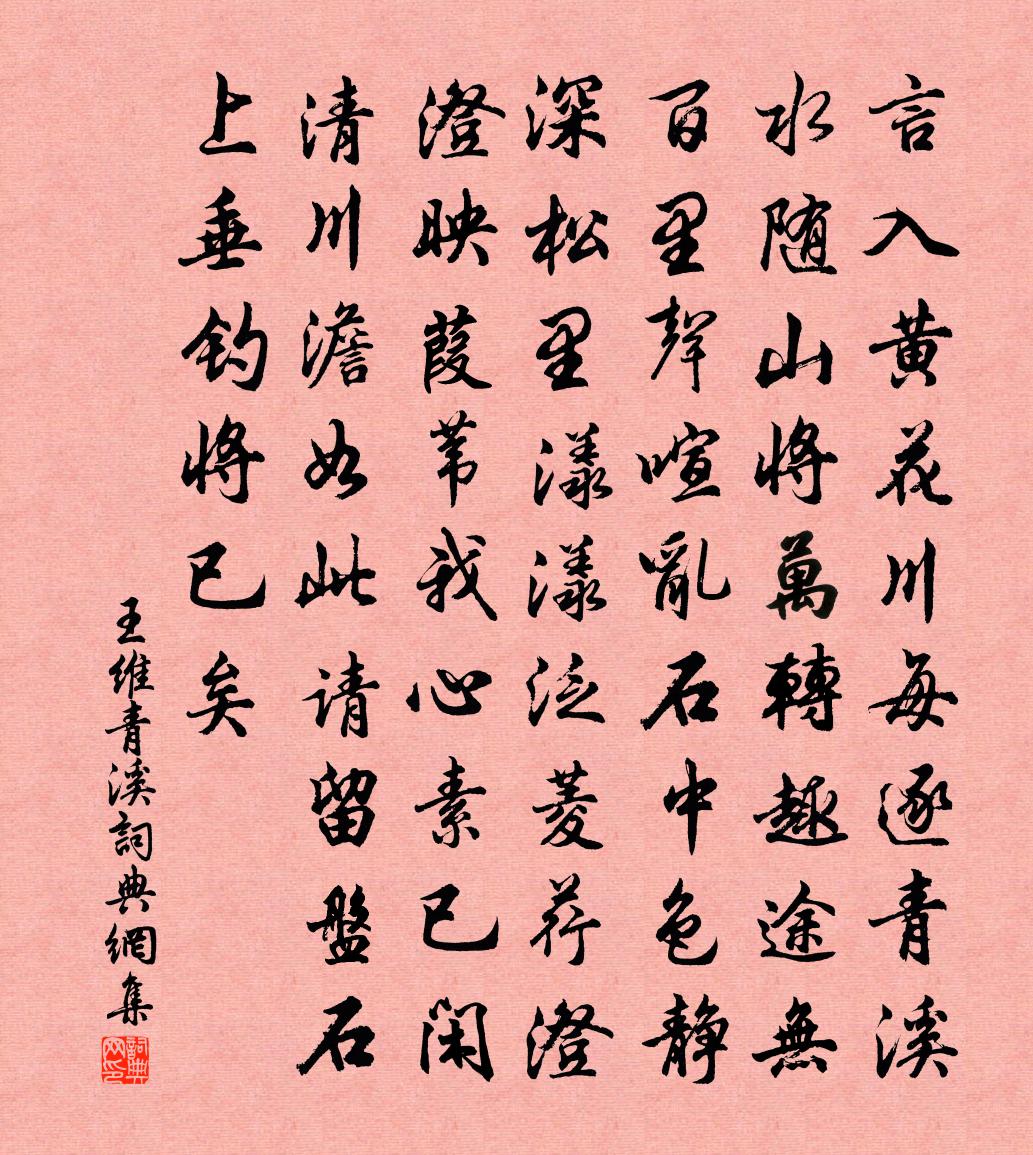 言入黄花川每逐青溪
水随山將萬轉趣途無
百里聲喧亂石中色静
深松里漾漾泛菱荇澄
澄映葭苇我心素已闲
清川澹如此请留盤石
上垂钓將已矣
王維青溪詞典網集
詞典网印